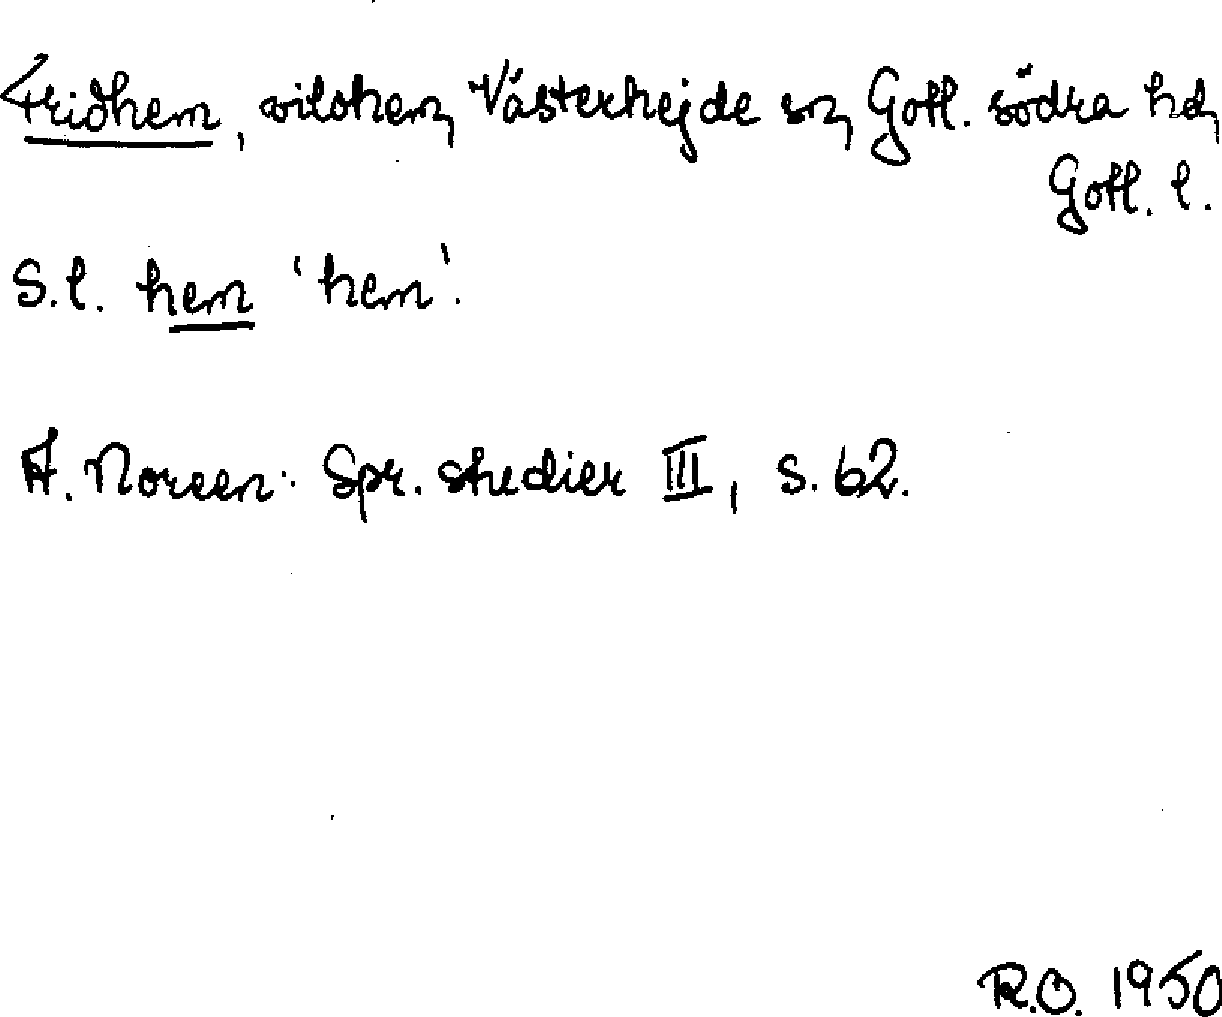 Fridhem, vilohem, Västerhejde sn, Gotl. södra hd,
Gotl. l.
S.l. hem 'hem'.
A. Noreen: Spr. studier III, s. 62.
R.O. 1950